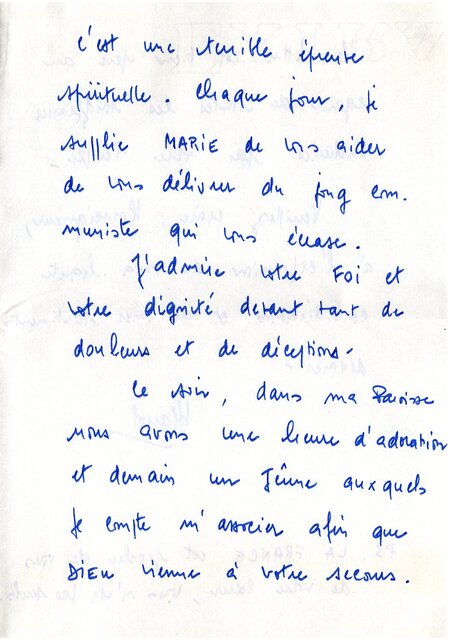 c'est une terrible épreuve
spirituelle. Chaque jour, je
supplie MARIE de vous aider
de vous délivrer du joug com-
muniste qui vous écrase.
J'admire votre FOI et
votre dignité devant tant de
douleurs et de déceptions.
Ce soir, dans ma Paroisse
nous avons une heure d'adoration
et demain un Jeûne auxquels
je compte m'associer afin que
DIEU vienne à votre secours.